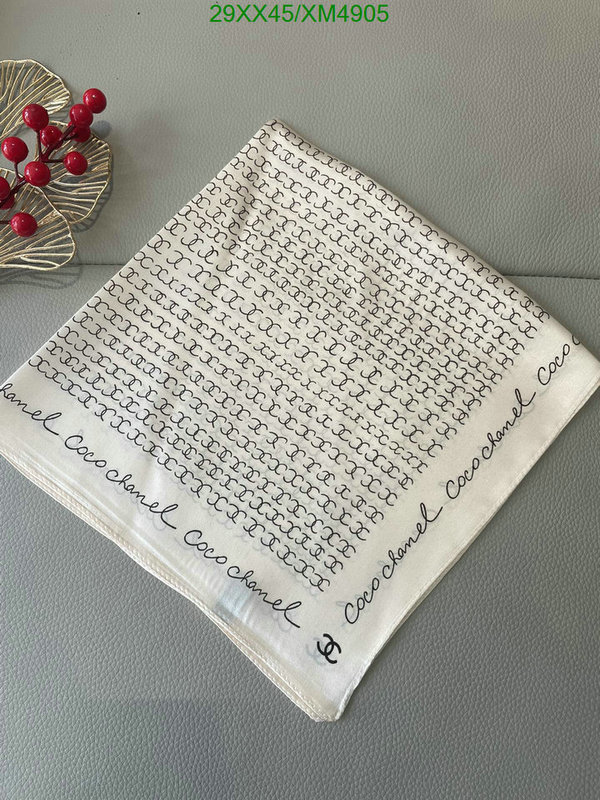 29XX45/XM4905
hanel Coco chanel Coco chanel
Coco chanel Coco chanel Coco